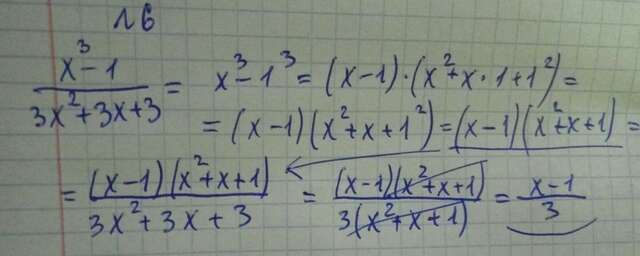 №6
x³-1 / 3x²+3x+3 = x³-1³ = (x-1)·(x²+x·1+1²) =
= (x-1)(x²+x+1²) = (x-1)(x²+x+1) =
= (x-1)(x²+x+1) / 3x²+3x+3 = (x-1)(x²+x+1) / 3(x²+x+1) = x-1 / 3